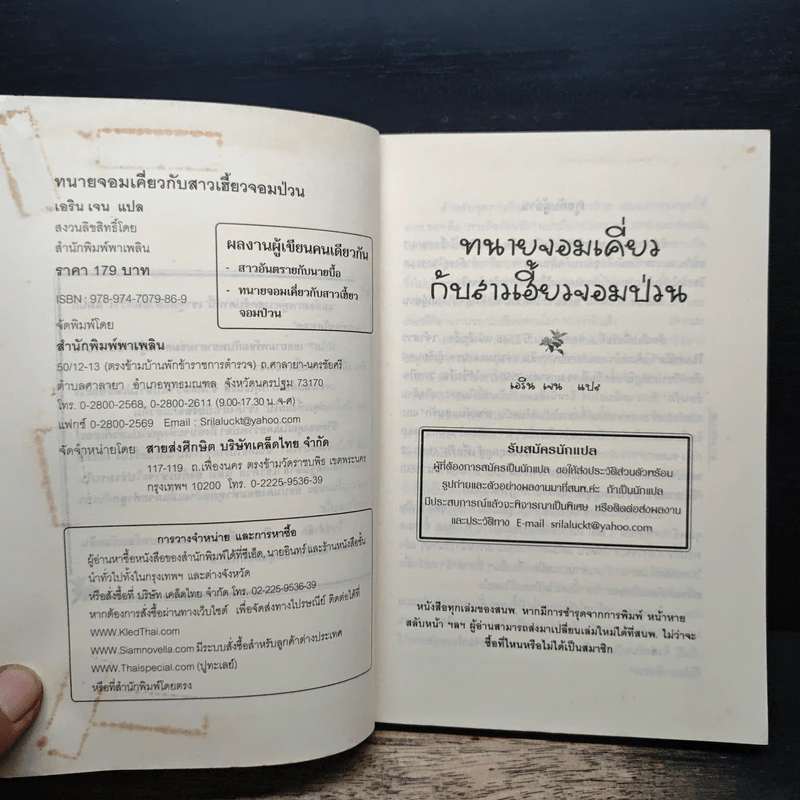 ทนายจอมเคี่ยวกับสาวเฮี้ยวจอมป่วน
เอริน เจน แปล
สงวนลิขสิทธิ์โดย
สำนักพิมพ์พาเพลิน
ราคา 179 บาท
ISBN : 978-974-7079-86-9
จัดพิมพ์โดย
สำนักพิมพ์พาเพลิน
50/12-13 (ตรงข้ามบ้านพักข้าราชการตำรวจ) ถ.ศาลายา-นครชัยศรี
ตำบลศาลายา อำเภอพุทธมณฑล จังหวัดนครปฐม 73170
โทร. 0-2800-2568, 0-2800-2611 (9.00-17.30 น. จ-ศ)
แฟกซ์ 0-2800-2569 Email : Srilaluckt@yahoo.com
จัดจำหน่ายโดย สายส่งศึกษิต บริษัทเคล็ดไทย จำกัด
117-119 ถ.เฟื่องนคร ตรงข้ามวัดราชบพิธ เขตพระนคร
กรุงเทพฯ 10200 โทร. 0-2225-9536-39
ผลงานผู้เขียนคนเดียวกัน
- สาวอันตรายกับนายบื้อ
- ทนายจอมเคี่ยวกับสาวเฮี้ยว
จอมป่วน
การวางจำหน่าย และการหาซื้อ
ผู้อ่านหาซื้อหนังสือของสำนักพิมพ์ได้ที่ซีเอ็ด, นายอินทร์ และร้านหนังสือชั้น
นำทั่วไปทั้งในกรุงเทพฯ และต่างจังหวัด
หรือสั่งซื้อที่ บริษัท เคล็ดไทย จำกัด โทร. 02-225-9536-39
หากต้องการสั่งซื้อผ่านทางเว็บไซต์ เพื่อจัดส่งทางไปรษณีย์ ติดต่อได้ที่
WWW.KledThai.com
WWW.Siamnovella.com มีระบบสั่งซื้อสำหรับลูกค้าต่างประเทศ
WWW.Thaispecial.com (ปูทะเลย์)
หรือที่สำนักพิมพ์โดยตรง
ทนายจอมเคี่ยว
กับสาวเฮี้ยวจอมป่วน
เอริน เจน แปล
รับสมัครนักแปล
ผู้ที่ต้องการสมัครเป็นนักแปล ขอให้ส่งประวัติส่วนตัวพร้อม
รูปถ่ายและตัวอย่างผลงานมาที่สนพ.ค่ะ ถ้าเป็นนักแปล
มีประสบการณ์แล้วจะพิจารณาเป็นพิเศษ หรือติดต่อส่งผลงาน
และประวัติทาง E-mail srilaluckt@yahoo.com
หนังสือทุกเล่มของสนพ. หากมีการชำรุดจากการพิมพ์ หน้าหาย
สลับหน้า ฯลฯ ผู้อ่านสามารถส่งมาเปลี่ยนเล่มใหม่ได้ที่สนพ. ไม่ว่าจะ
ซื้อที่ไหนหรือไม่ได้เป็นสมาชิก